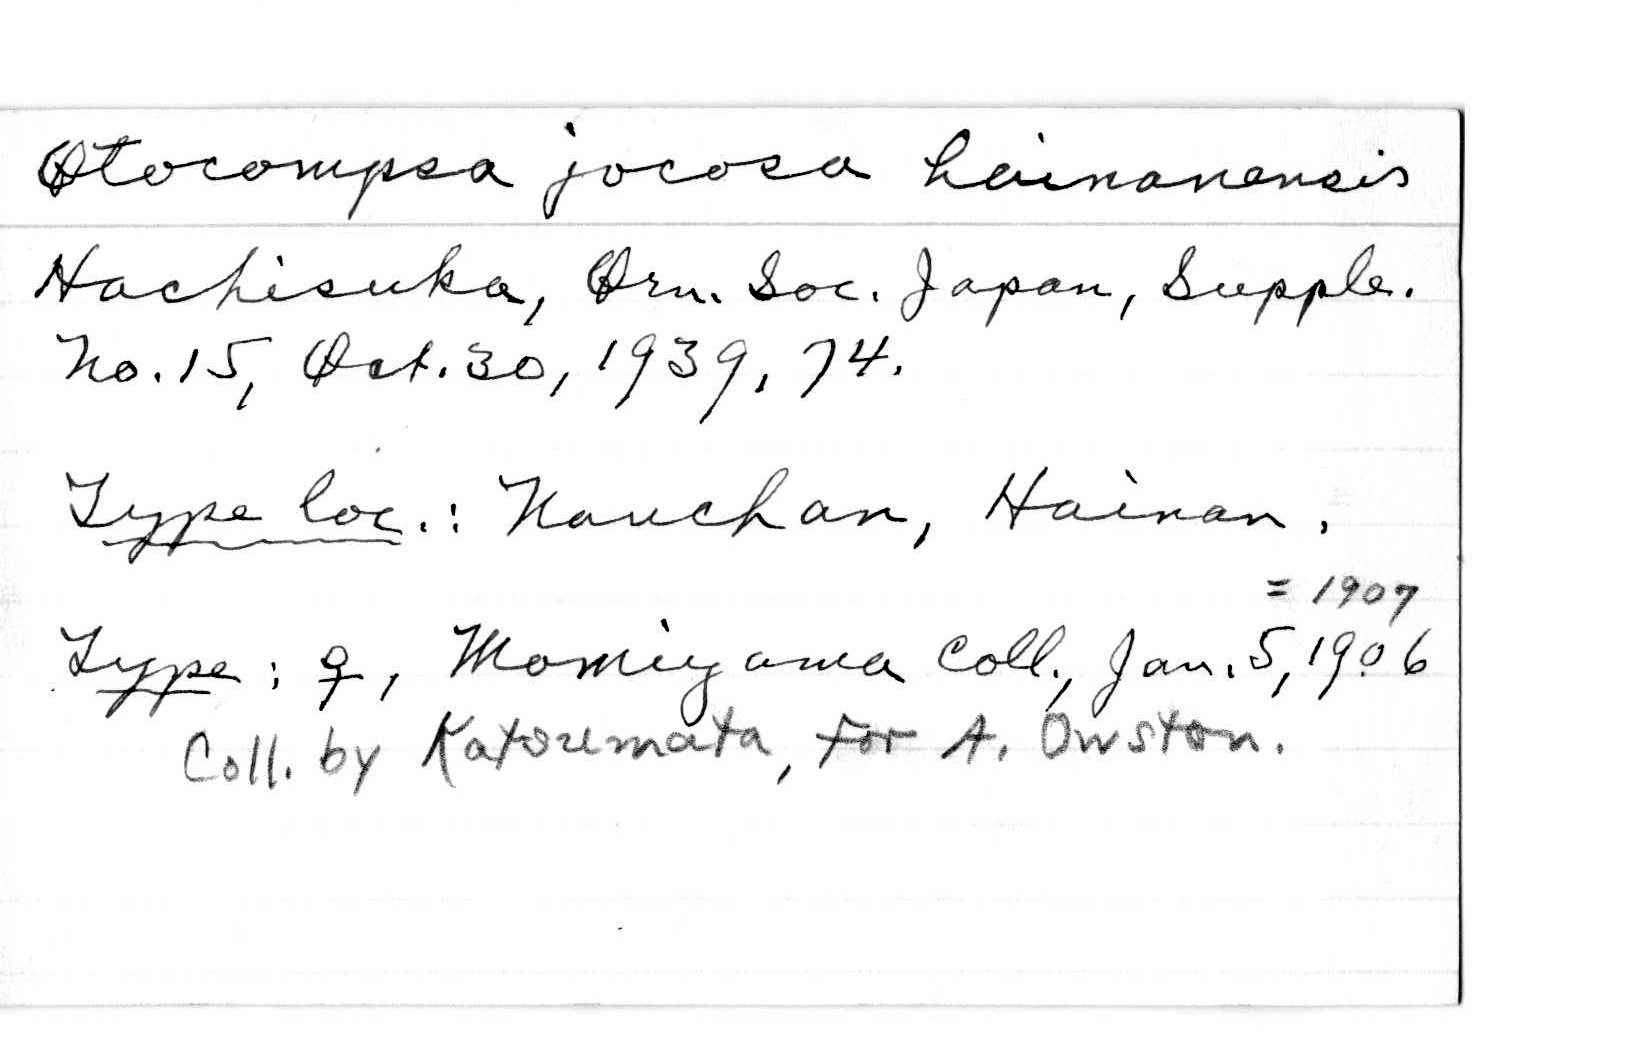 Otocompsa jocosa hainanensis
Hachisuka, Orn. Soc. Japan, Supple.
No. 15, Oct. 30, 1939, 74.
Type loc.: Nauchan, Hainan.
= 1907
Type: ♀, Momiyama Coll., Jan. 5, 1906
Coll. by Katsumata, for A. Owston.